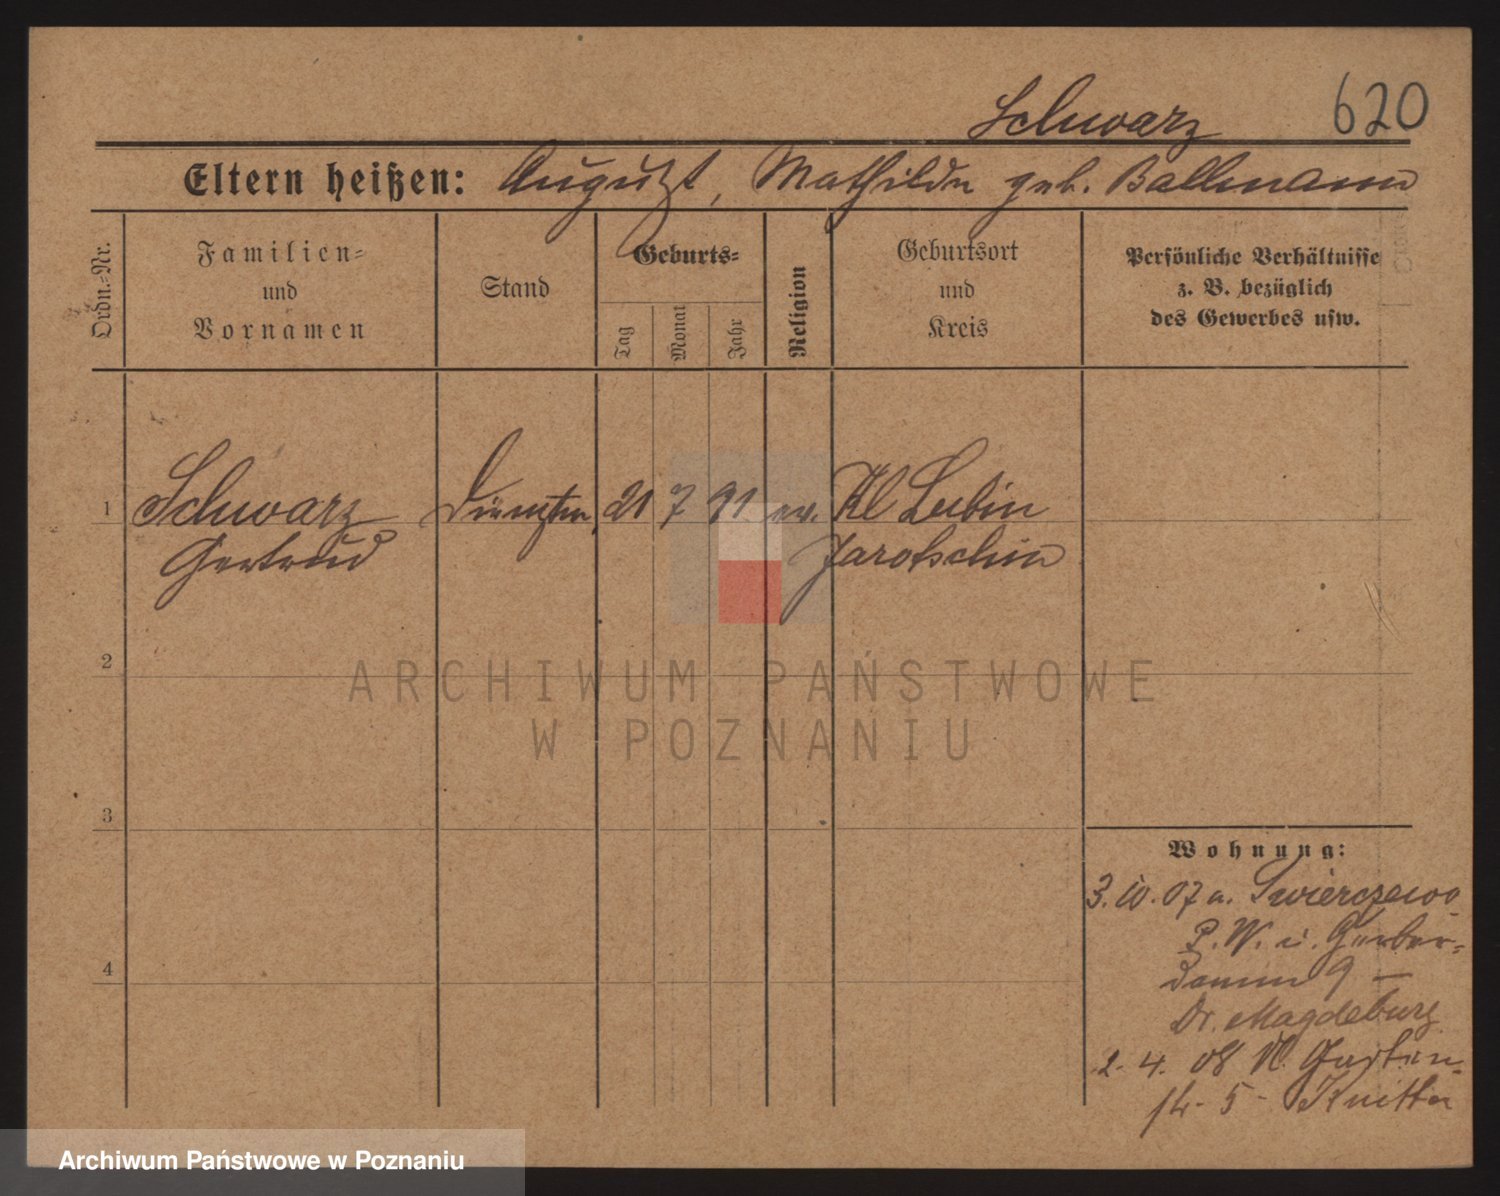 Schwarz 620
Eltern heißen: August, Mathilde geb. Ballmann
Ordn.-Nr.
Familien-
und
Vornamen
Stand
Geburts-
Tag
Monat
Jahr
Religion
Geburtsort
und
Kreis
Persönliche Verhältnisse
z. B. bezüglich
des Gewerbes usw.
1 Schwarz 21 7 91 ev. Kl Lubin
Gertrud Jarotschin
2
3
4
Wohnung:
3. 10. 07 a. Swierczewo
P. W. u. Gerber-
damm 9 —
Dr. Magdeburg
2. 4. 08 Garten-
str. 5 - Knitter
ARCHIWUM PAŃSTWOWE
W POZNANIU
Archiwum Państwowe w Poznaniu